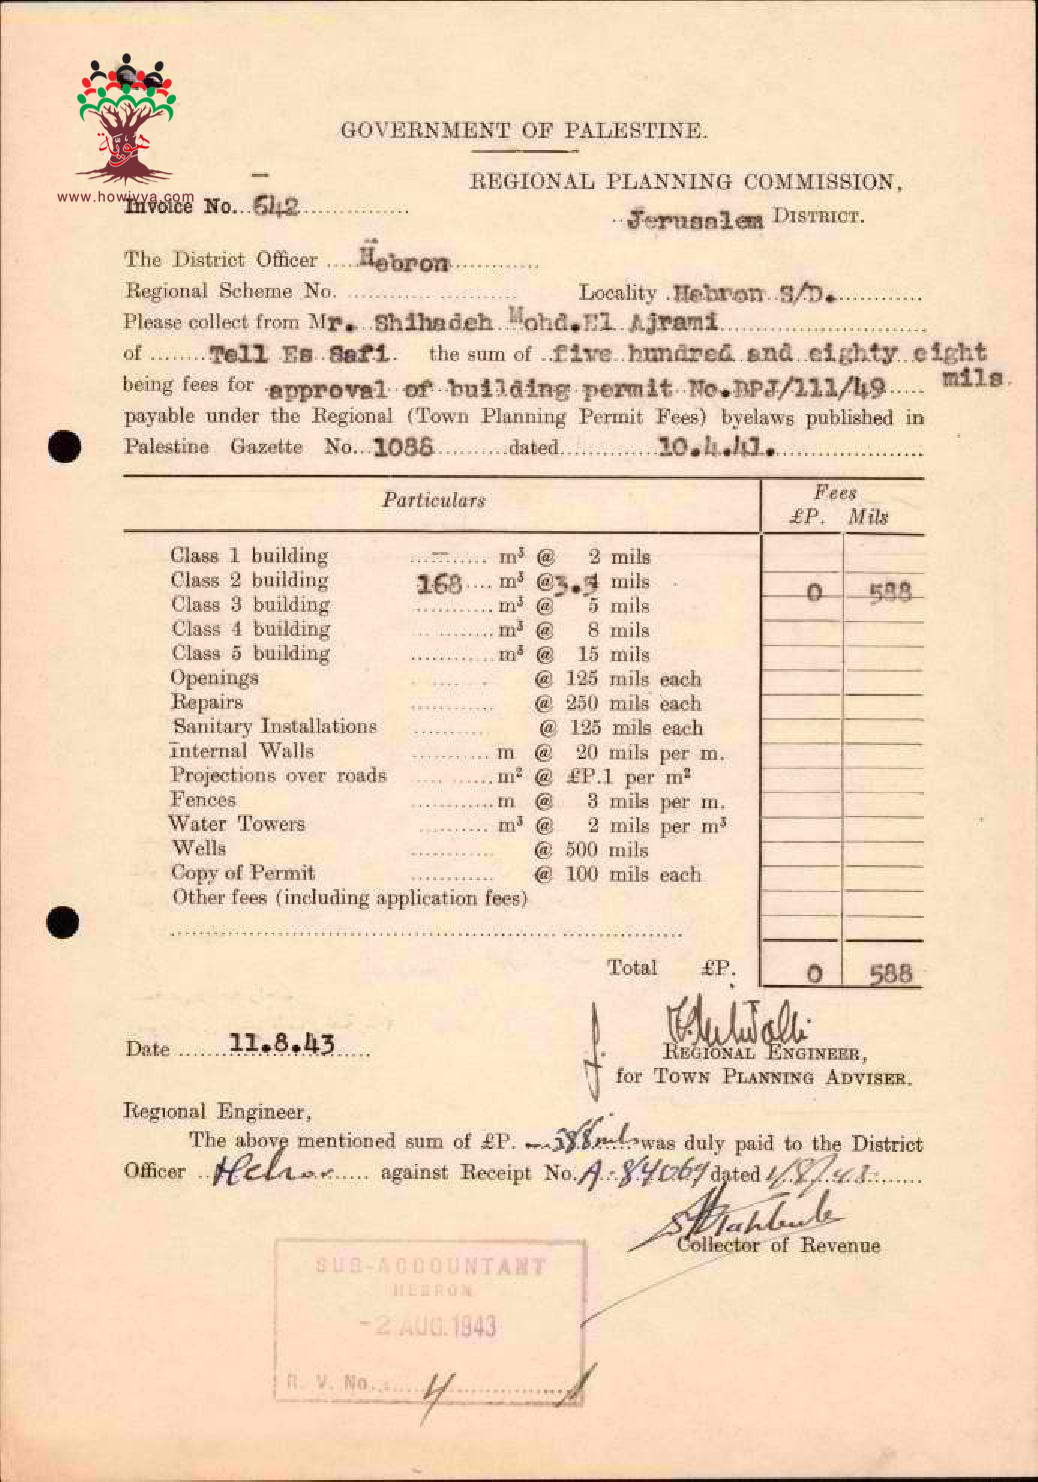 هوية
www.howiyya.com
GOVERNMENT OF PALESTINE.
REGIONAL PLANNING COMMISSION,
Invoice No... 642
Jerusalem DISTRICT.
The District Officer .... Hebron
Regional Scheme No.
Locality . Hebron S/D.
Please collect from Mr. Shihadeh Mohd.El Ajrami
of ........ Tell Es Safi. the sum of .. five hundred and eighty eight
being fees for approval of building permit No. /111/49 mils.
payable under the Regional (Town Planning Permit Fees) byelaws published in
Palestine Gazette No... 1088 dated 10.4.41.
Particulars Fees
£P. Mils
Class 1 building – m³ @ 2 mils
Class 2 building 168 m³ @ 3.5 mils 0 588
Class 3 building m³ @ 5 mils
Class 4 building m³ @ 8 mils
Class 5 building m³ @ 15 mils
Openings @ 125 mils each
Repairs @ 250 mils each
Sanitary Installations @ 125 mils each
Internal Walls m @ 20 mils per m.
Projections over roads m² @ £P.1 per m²
Fences m @ 3 mils per m.
Water Towers m³ @ 2 mils per m³
Wells @ 500 mils
Copy of Permit @ 100 mils each
Other fees (including application fees)
Total £P. 0 588
Date 11.8.43
REGIONAL ENGINEER,
for TOWN PLANNING ADVISER.
Regional Engineer,
The above mentioned sum of £P. — 588 mils was duly paid to the District
Officer Hebron against Receipt No. A-84069 dated /8/43
Collector of Revenue
SUB-ACCOUNTANT
HEBRON
-2 AUG.1943
R. V. No. 4